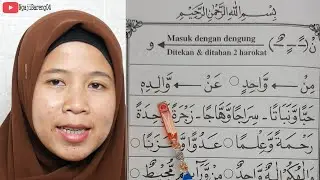 NgajiBareng04
بِسْمِ اللّٰهِ الرَّحْمٰنِ الرَّحِيْمِ
Masuk dengan dengung
Ditekan & ditahan 2 harokat
مِنْ وَّاحِدٍ عَنْ وَّالِدِهٖ
حَبًّا وَّنَبَاتًا - سِرَاجًا وَّهَّاجًا - زَجْرَةٌ وَّاحِدَةٌ
رَحْمَةً وَّعِلْمًا - عَدُوًّا وَّحَزَنًا